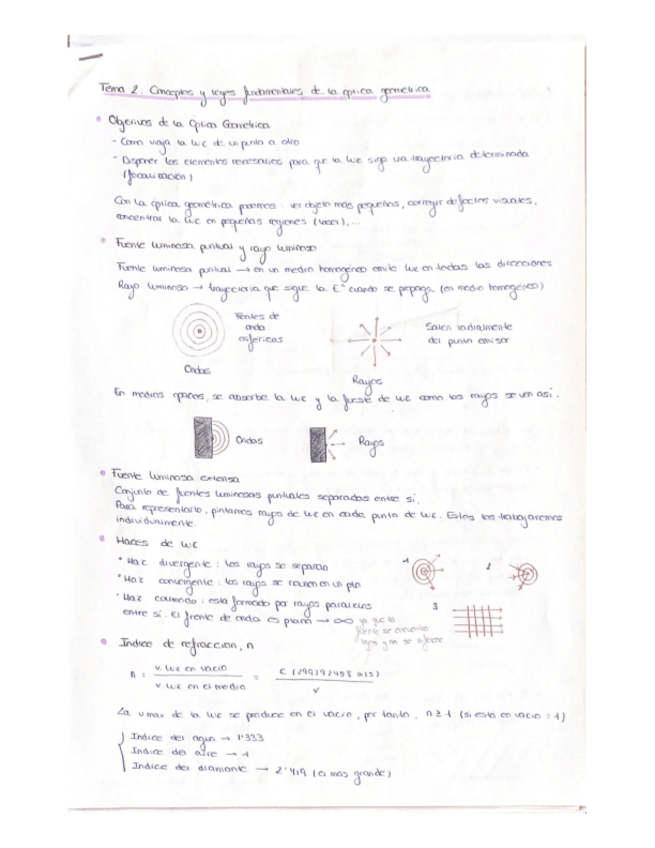 Tema 2. Conceptos y leyes fundamentales de la óptica geométrica
Objetivos de la Óptica Geométrica
- Como viaja la luz de un punto a otro
- Disponer los elementos necesarios para que la luz siga una trayectoria determinada
(focalización)
Con la óptica geométrica podemos: ver objetos más pequeños, corregir defectos visuales,
concentrar la luz en pequeñas regiones (láser),...
Fuente luminosa puntual y rayo luminoso
Fuente luminosa puntual → en un medio homogéneo emite luz en todas las direcciones
Rayo luminoso → trayectoria que sigue la Eª cuando se propaga (en medio homogéneo)
Frentes de
onda
esféricos
Salen radialmente
del punto emisor
Ondas
Rayos
En medios opacos, se absorbe la luz y la fuente de luz como los rayos se ven así.
Ondas
Rayos
Fuente luminosa extensa
Conjunto de fuentes luminosas puntuales separadas entre sí.
Para representarlo, pintamos rayos de luz en cada punto de luz. Estos los trabajaremos
individualmente.
Haces de luz
* Haz divergente: los rayos se separan
* Haz convergente: los rayos se reúnen en un pto
* Haz colimado: está formado por rayos paralelos
entre sí. El frente de onda es plano → ∞ ya que la
fuente se encuentra
lejos y no se
1
2
3
Índice de refracción, n
n = v. luz en vacío / v luz en el medio = c (299792458 m/s) / v
La vmax de la luz se produce en el vacío, por tanto, n ≥ 1 (si está en vacío = 1)
Índice del agua → 1'333
Índice del aire → 1
Índice del diamante → 2'419 (el más grande)